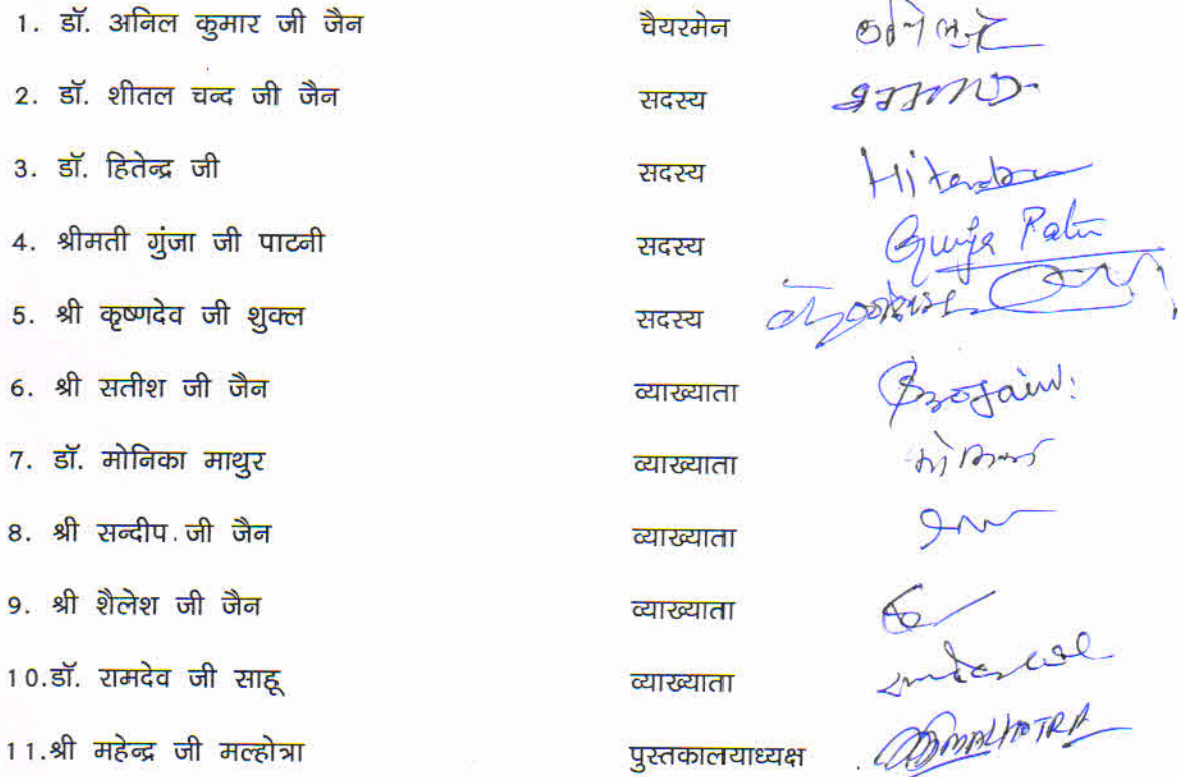 1. डॉ. अनिल कुमार जी जैन चैयरमेन
2. डॉ. शीतल चन्द जी जैन सदस्य
3. डॉ. हितेन्द्र जी सदस्य Hitendra
4. श्रीमती गुंजा जी पाटनी सदस्य Gunja Patni
5. श्री कृष्णदेव जी शुक्ल सदस्य
6. श्री सतीश जी जैन व्याख्याता
7. डॉ. मोनिका माथुर व्याख्याता
8. श्री सन्दीप जी जैन व्याख्याता
9. श्री शैलेश जी जैन व्याख्याता
10.डॉ. रामदेव जी साहू व्याख्याता
11.श्री महेन्द्र जी मल्होत्रा पुस्तकालयाध्यक्ष MALHOTRA